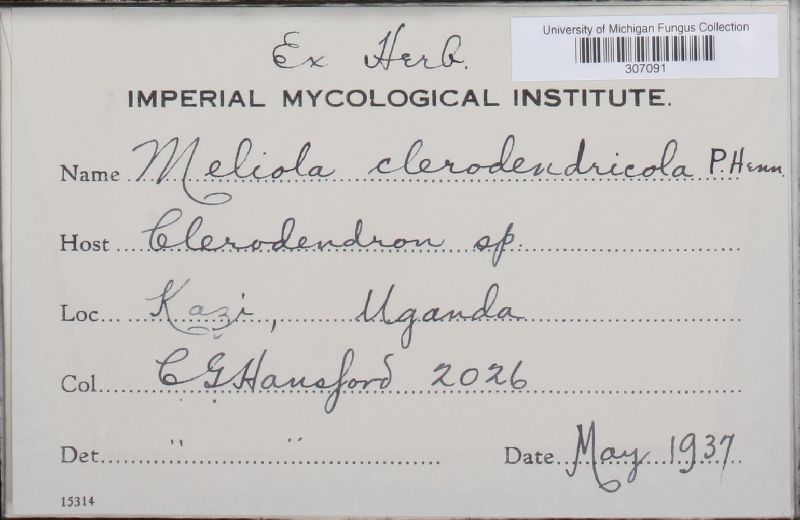 University of Michigan Fungus Collection
307091
Ex Herb.
IMPERIAL MYCOLOGICAL INSTITUTE.
Name Meliola clerodendricola P. Henn.
Host Clerodendron sp.
Loc. Kazi, Uganda
Col. CGHansford 2026
Det. " "
Date May 1937
15314